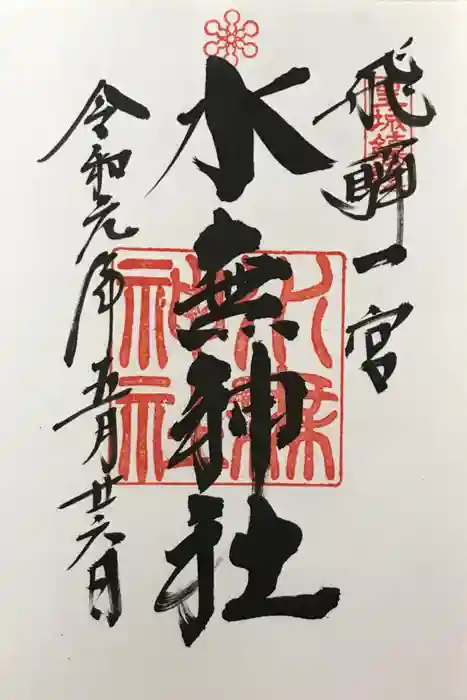 飛騨一宮
水無神社
令和元年五月廿六日